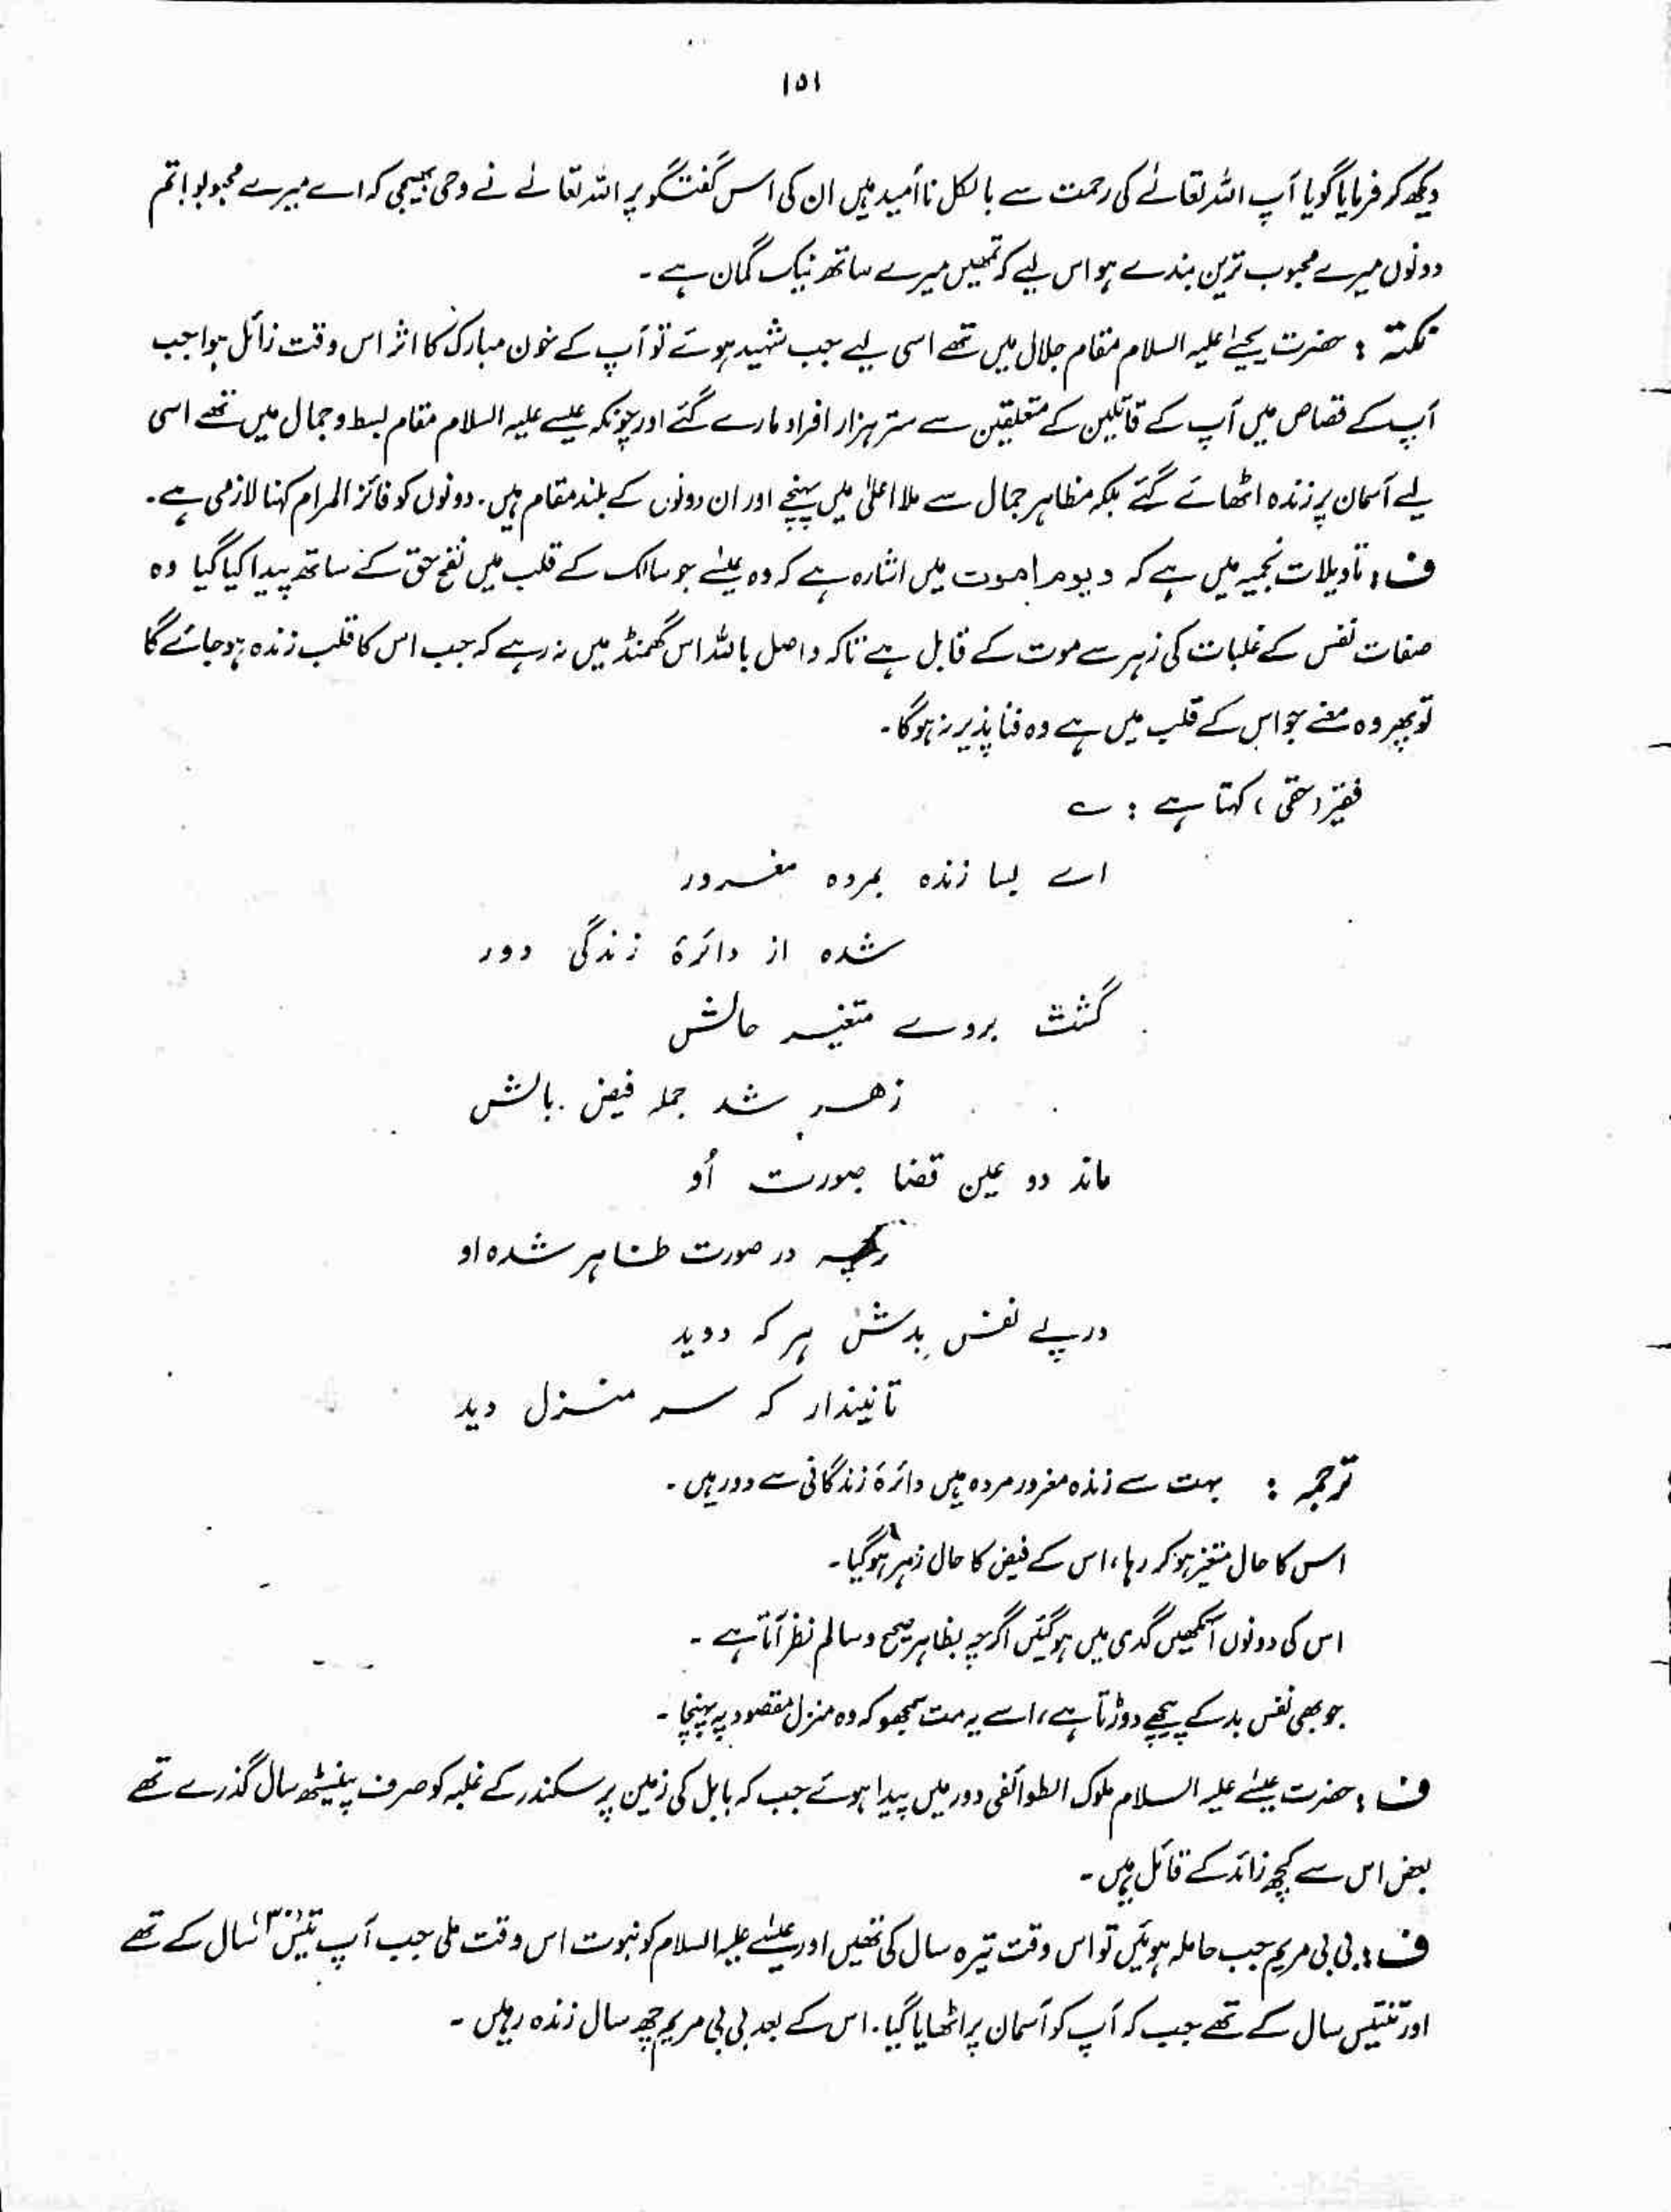 ۱۵۱
دیکھ کر فرمایا گویا آپ اللہ تعالٰے کی رحمت سے بالکل ناامید ہیں ان کی اس گفتگو پر اللہ تعالٰے نے وحی بھیجی کہ اے میرے محبوبو! تم
دونوں میرے محبوب ترین بندے ہو اس لیے کہ تمھیں میرے ساتھ نیک گمان ہے ۔
نکتہ : حضرت یحیٰے علیہ السلام مقام جلال میں تھے اسی لیے جب شہید ہوئے تو آپ کے خون مبارک کا اثر اس وقت زائل ہوا جب
آپ کے قصاص میں آپ کے قاتلین کے متعلقین سے ستر ہزار افراد مارے گئے اور چونکہ عیسٰے علیہ السلام مقام بسط و جمال میں تھے اسی
لیے آسمان پر زندہ اٹھائے گئے بلکہ مظاہر جمال سے ملا اعلیٰ میں پہنچے اور ان دونوں کے بلند مقام ہیں ۔ دونوں کو فائز المرام کہنا لازمی ہے ۔
ف : تاویلات نجمیہ میں ہے کہ و یوم اموت میں اشارہ ہے کہ وہ عیسٰے جو سالک کے قلب میں نفخ حق کے ساتھ پیدا کیا گیا وہ
صفات نفس کے غلبات کی زہر سے موت کے قابل ہے تاکہ واصل باللہ اس گھمنڈ میں نہ رہے کہ جب اس کا قلب زندہ ہو جائے گا
تو پھر وہ معنے جو اس کے قلب میں ہے وہ فنا پذیر نہ ہوگا ۔
فقیر (حقی) کہتا ہے : ے
اے بسا زندہ بمردہ مغرور
شدہ از دائرۂ زندگی دور
گشت بروے متغیر حالش
زھر شد جملہ فیض بالش
ماند دو عین قضا صورت اُو
در صورت ظاہر شدہ او
در پے نفس بدش ہر کہ دوید
تا نپندار کہ سر منزل دید
ترجمہ : بہت سے زندہ مغرور مردہ ہیں دائرۂ زندگانی سے دور ہیں ۔
اس کا حال متغیر ہو کر رہا ، اس کے فیض کا حال زہر ہوگیا ۔
اس کی دونوں آنکھیں گدی میں ہوگئیں اگرچہ بظاہر صحیح و سالم نظر آتا ہے ۔
جو بھی نفس بد کے پیچھے دوڑتا ہے ، اسے یہ مت سمجھو کہ وہ منزل مقصود پہ پہنچا ۔
ف : حضرت عیسٰے علیہ السلام ملوک الطوائفی دور میں پیدا ہوئے جب کہ بابل کی زمین پر سکندر کے غلبہ کو صرف پینسٹھ سال گذرے تھے
بعض اس سے کچھ زائد کے قائل ہیں ۔
ف : بی بی مریم جب حاملہ ہوئیں تو اس وقت تیرہ سال کی تھیں اور عیسٰے علیہ السلام کو نبوت اس وقت ملی جب آپ تیس (۳۰) سال کے تھے
اور تینتیس سال کے تھے جب کہ آپ کو آسمان پر اٹھایا گیا ۔ اس کے بعد بی بی مریم چھ سال زندہ رہیں ۔